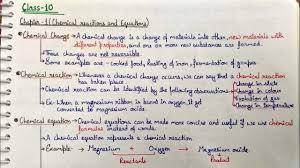 Class-10
Chapter-1 (Chemical reactions and Equations)
Chemical Change → A chemical change is a change of materials into other, new materials with
different properties, and one or more new substances are formed.
These changes are not reversible.
Some examples are - Cooked food, Rusting of iron, Formation of grapes.
Chemical reaction → Whenever a chemical change occurs, we can say that a chemical reaction
has taken place.
Reaction can be identified by the following observations
Change in state
Change in colour
Evolution of gas
Change in temperature
Ex- When a magnesium ribbon is burnt in oxygen. It get
converted to magnesium oxide.
Chemical equation → Chemical equations can be made more concise and useful if we use chemical
formulas instead of words.
A chemical equation represents a chemical reaction
Example → Magnesium + Oxygen → Magnesium oxide
Reactants Product